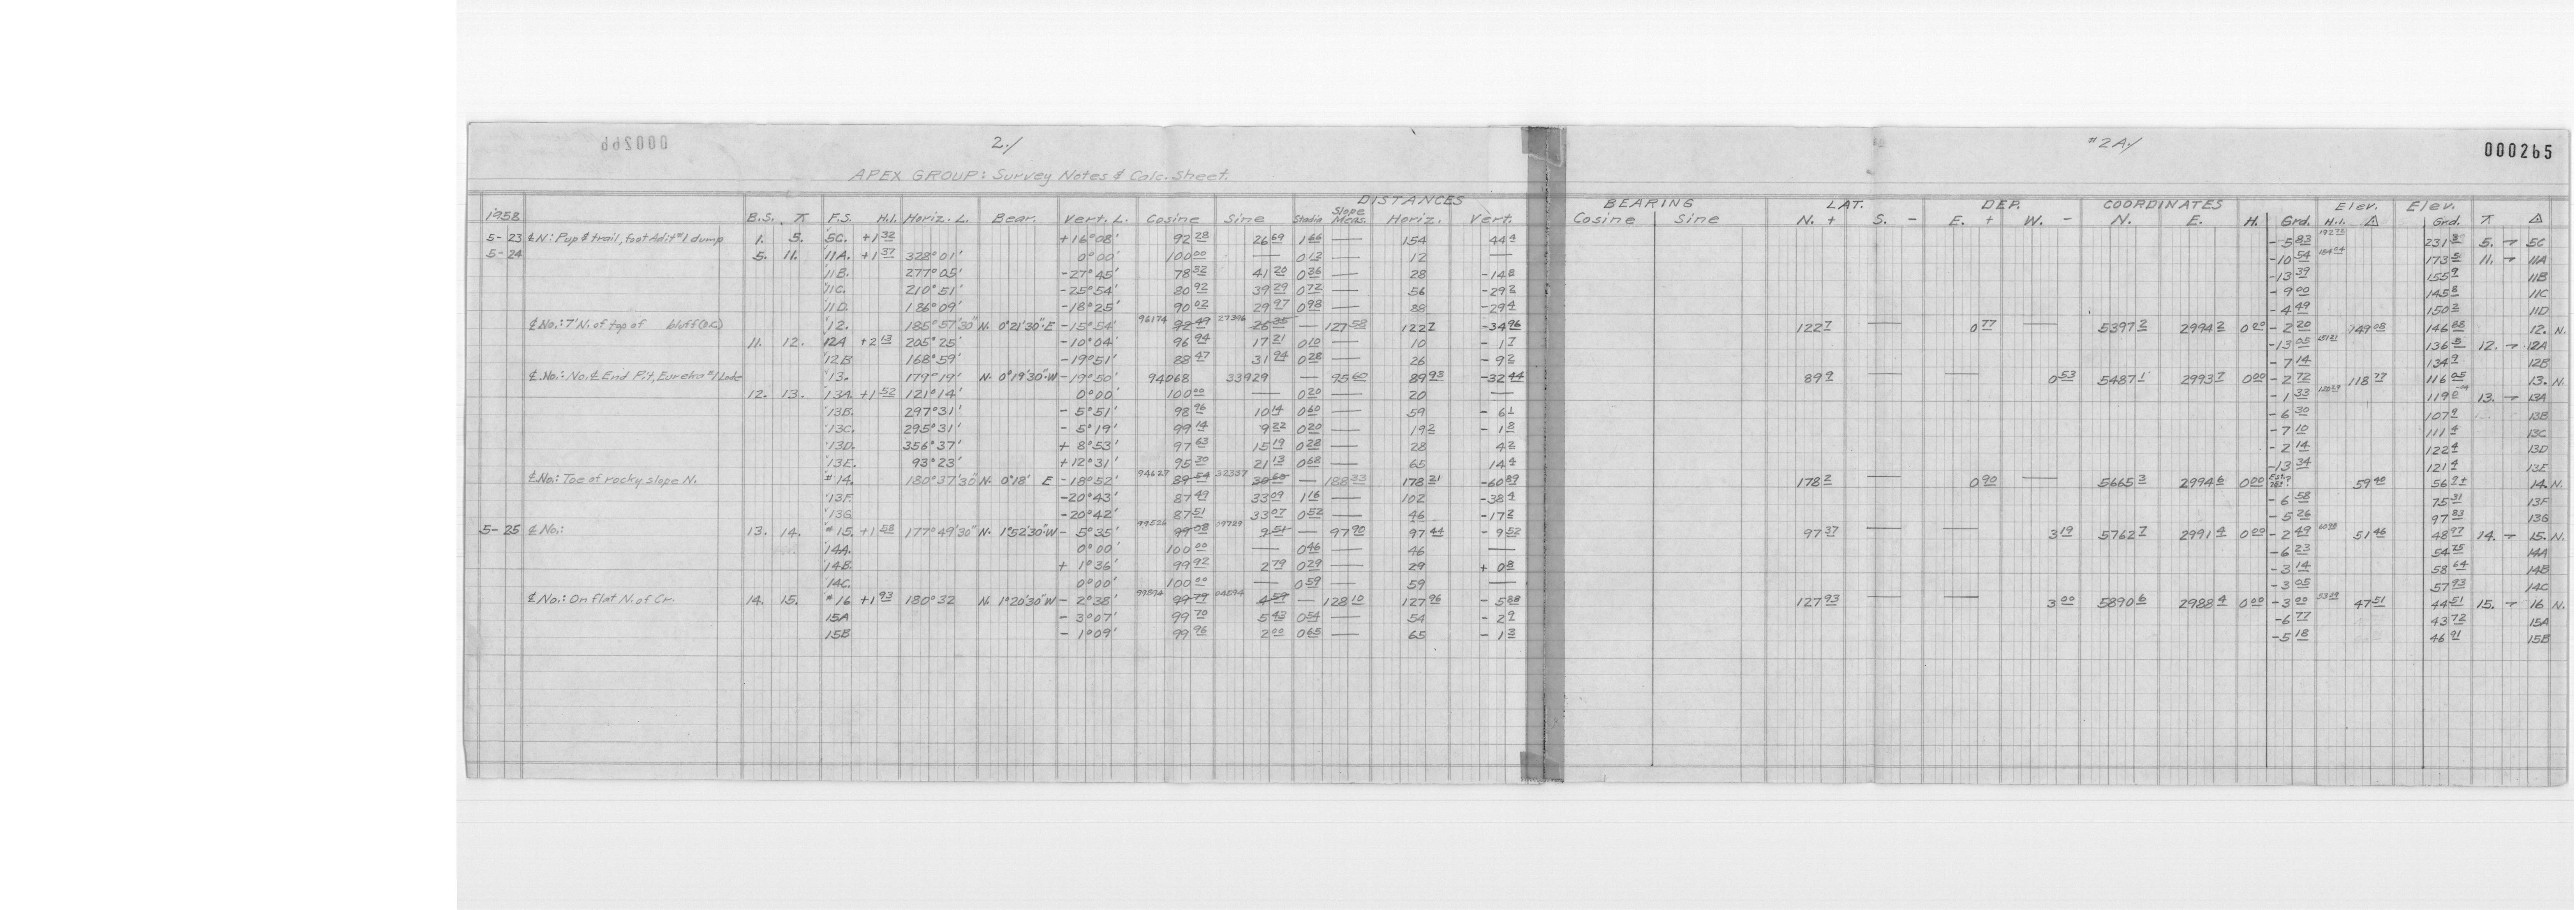 000266
2./
#2A./
000265
APEX GROUP: Survey Notes & Calc. Sheet.
DISTANCES BEARING LAT. DEP. COORDINATES Elev. Elev.
1958 B.S. ⊼ F.S. H.I. Horiz. ∠. Bear. Vert. ∠. Cosine Sine Stadia Slope Meas. Horiz. Vert. Cosine Sine N. + S. - E. + W. - N. E. H. Grd. H.I. △ Grd. ⊼ △
5-23 ¢ N: Pup & trail, foot Adit #1 dump 1. 5. 5C. +1 32 +16°08' 92 28 26 69 1 66 — 154 44 4 -5 83 231 8 5. → 5C
5-24 5. 11. 11A. +1 37 328°01' 0°00' 100 00 — 0 12 — 12 — -10 54 184 04 173 5 11. → 11A
11B. 277°05' -27°45' 78 32 41 20 0 36 — 28 -14 8 -13 39 155 9 11B
11C. 210°51' -25°54' 80 92 39 29 0 72 — 56 -29 2 -9 00 145 8 11C
11D. 186°09' -18°25' 90 02 29 97 0 98 — 88 -29 4 -4 49 150 2 11D
¢ No.: 7' N. of top of bluff (o.c.) 12. 185°57'30" N. 0°21'30" E -15°54' 96174 92 49 27396 26 35 — 127 58 122 7 -34 96 122 7 — 0 77 — 5397 2 2994 2 0 00 -2 20 149 08 146 88 12. N.
11. 12. 12A +2 13 205°25' -10°04' 96 94 17 21 0 10 — 10 -1 7 -13 05 151 21 136 5 12. → 12A
12B 168°59' -19°51' 88 47 31 94 0 28 — 26 -9 2 -7 14 134 9 12B
¢ No.: No. ¢ End Pit, Eureka #1 Lode 13. 179°19' N. 0°19'30" W -19°50' 94068 33929 — 95 60 89 93 -32 44 89 9 — — 0 53 5487 1 2993 7 0 00 -2 72 118 77 116 05 13. N.
12. 13. 13A. +1 52 121°14' 0°00' 100 00 — 0 20 — 20 — -1 33 119 0 13. → 13A
13B. 297°31' -5°51' 98 96 10 14 0 60 — 59 -6 1 -6 30 107 9 13B
13C. 295°31' -5°19' 99 14 9 22 0 20 — 19 2 -1 8 -7 10 111 4 13C
13D. 356°37' +8°53' 97 63 15 19 0 28 — 28 4 2 -2 14 122 4 13D
13E. 93°23' +12°31' 95 30 21 13 0 68 — 65 14 4 -13 34 121 4 13E
¢ No.: Toe of rocky slope N. #14. 180°37'30" N. 0°18' E -18°52' 94627 89 54 32337 30 60 — 188 33 178 21 -60 89 178 2 — 0 90 — 5665 3 2994 6 0 00 59 40 56 2± 14. N.
13F. -20°43' 87 49 33 09 1 16 — 102 -38 4 -6 58 75 31 13F
13G. -20°42' 87 51 33 07 0 52 — 46 -17 2 -5 26 97 83 13G
5-25 ¢ No.: 13. 14. #15. +1 58 177°49'30" N. 1°52'30" W -5°35' 99526 99 08 09729 9 51 — 97 90 97 44 -9 52 97 37 — — 3 19 5762 7 2991 4 0 00 -2 49 60 98 51 46 48 97 14. → 15. N.
14A. 0°00' 100 00 — 0 46 — 46 — -6 23 54 75 14A
14B. +1°36' 99 92 2 79 0 29 — 29 +0 8 -3 14 58 64 14B
14C. 0°00' 100 00 — 0 59 — 59 — -3 05 57 93 14C
¢ No.: On flat N. of Cr. 14. 15. #16 +1 93 180°32 N. 1°20'30" W -2°38' 99894 99 79 04594 4 59 — 128 10 127 96 -5 88 127 93 — — 3 00 5890 6 2988 4 0 00 -3 00 53 39 47 51 44 51 15. → 16 N.
15A -3°07' 99 70 5 43 0 54 — 54 -2 9 -6 77 43 72 15A
15B -1°09' 99 96 2 00 0 65 — 65 -1 3 -5 18 46 91 15B